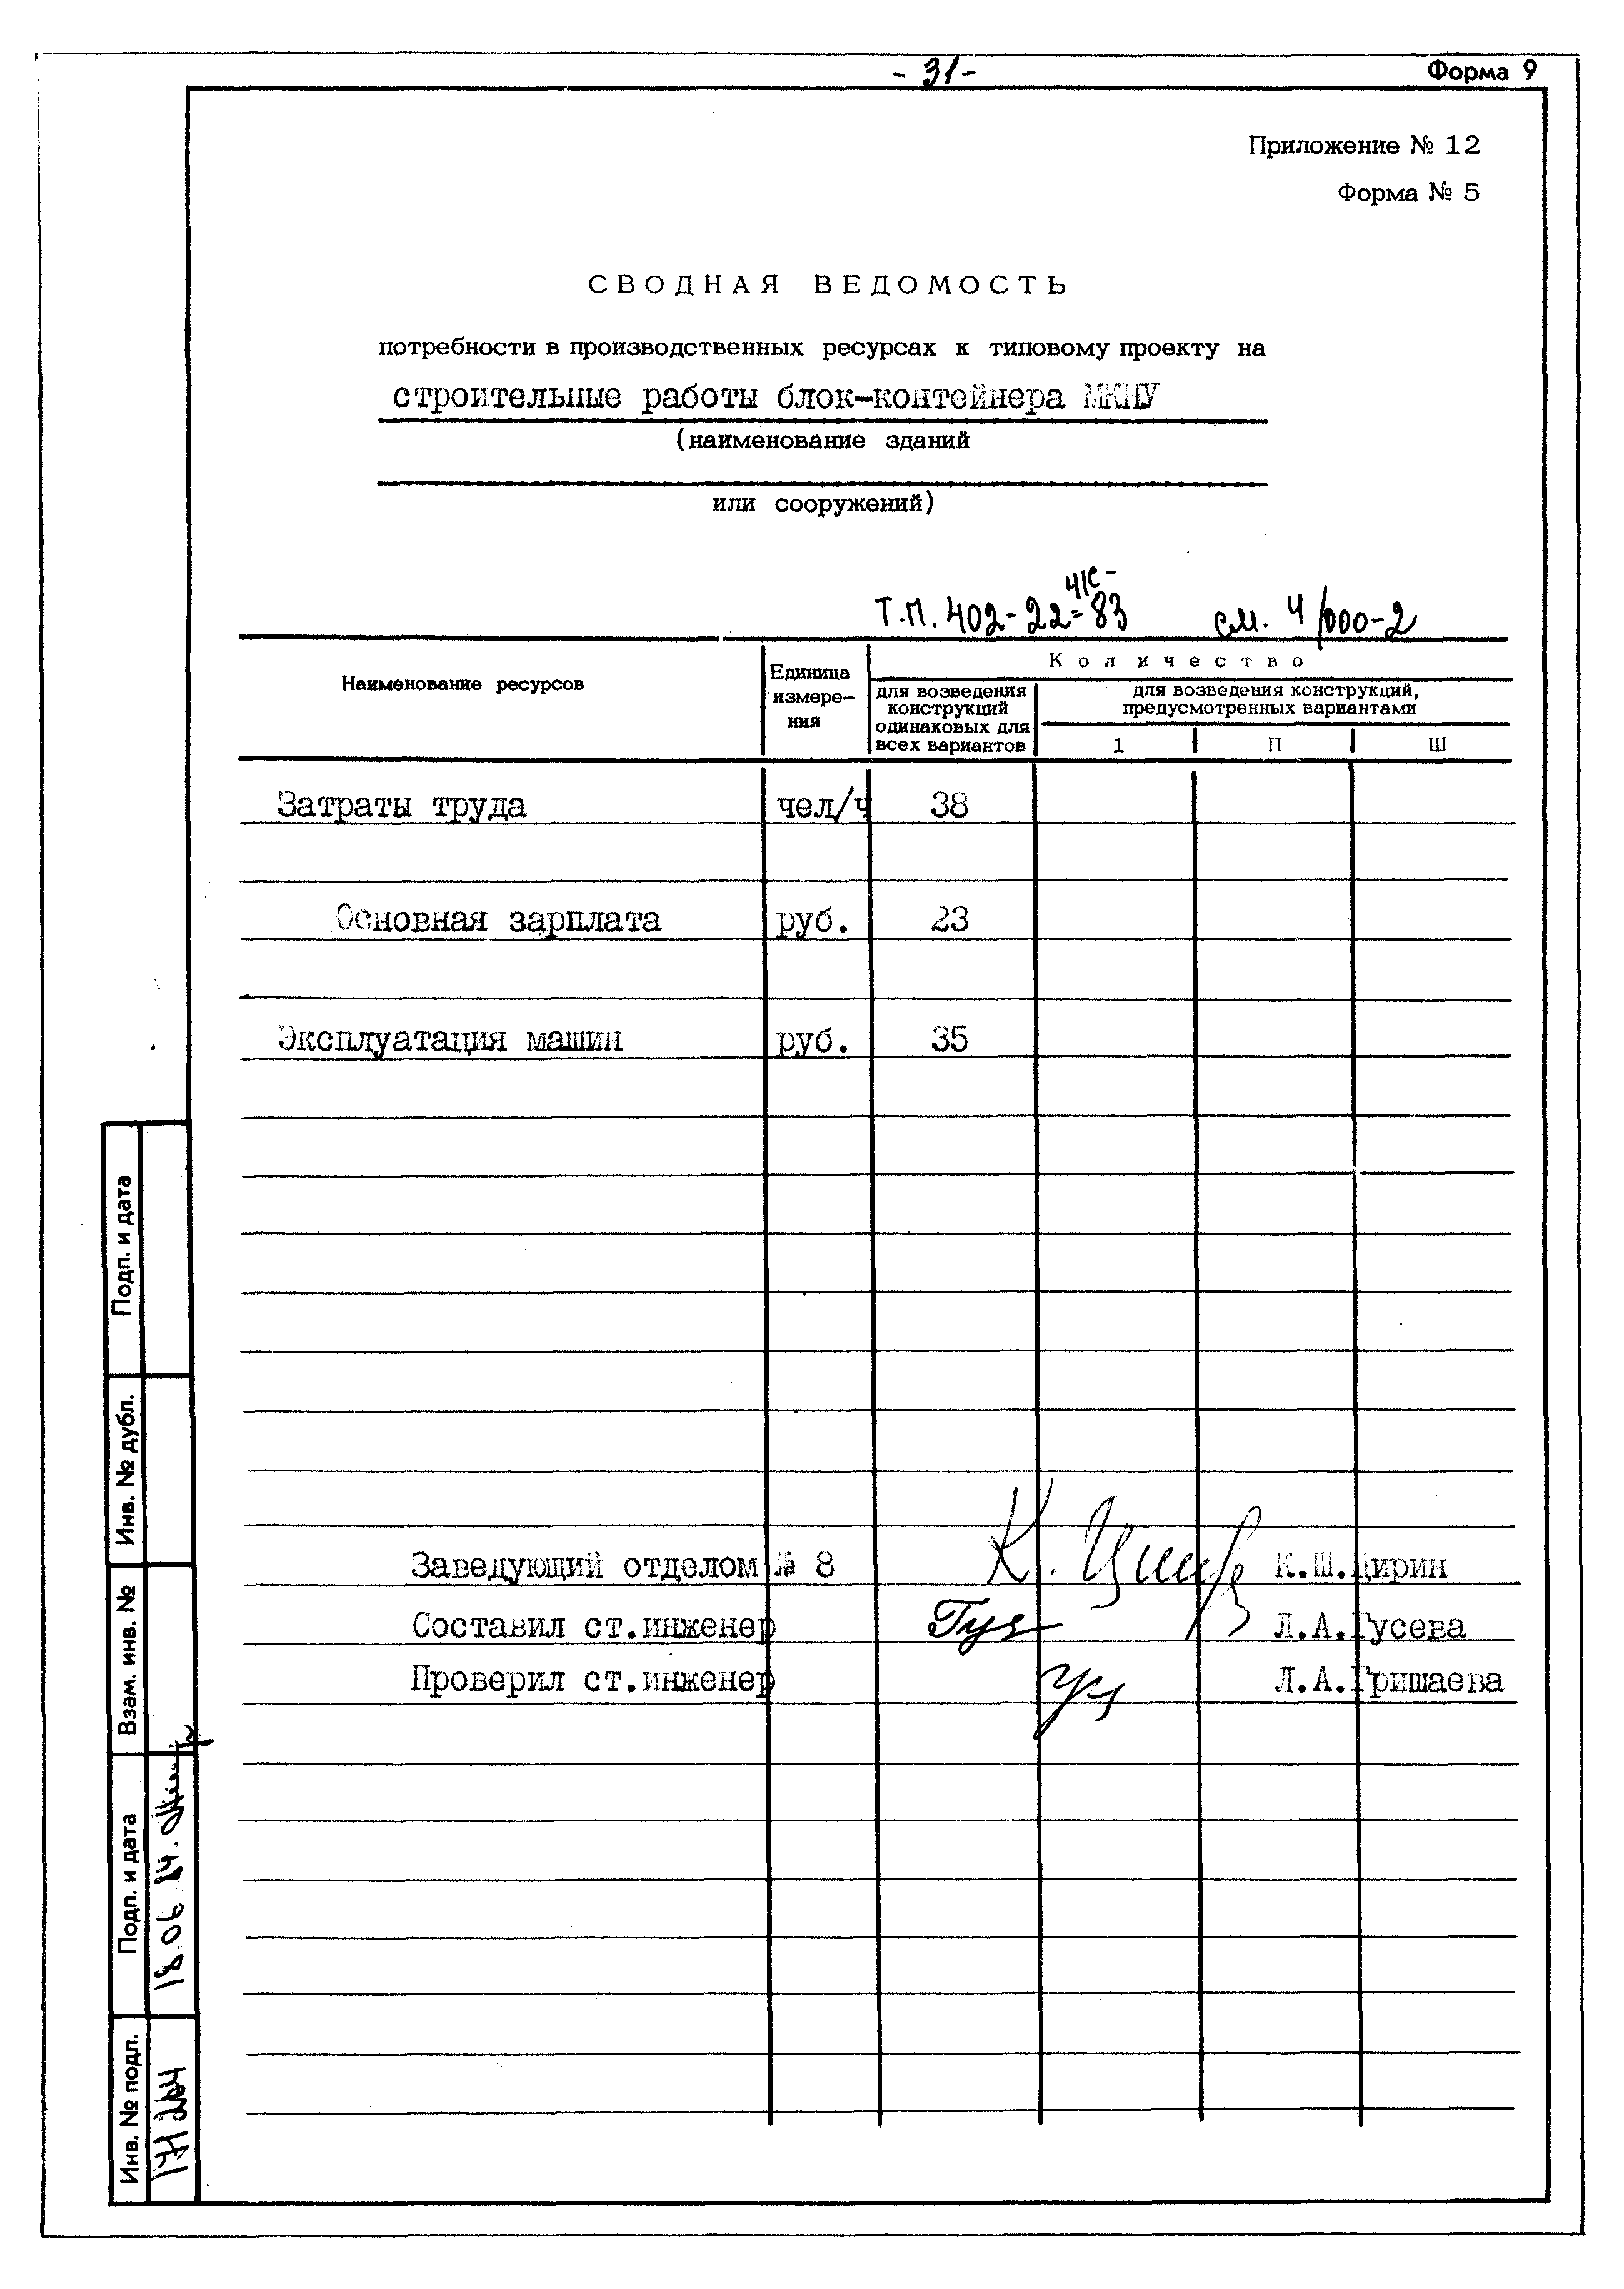 - 31 -
Форма 9
Приложение № 12
Форма № 5
СВОДНАЯ ВЕДОМОСТЬ
потребности в производственных ресурсах к типовому проекту на
строительные работы блок-контейнера МКПУ
(наименование зданий
или сооружений)
Т.П. 402-22-41с-83 см. ч/000-2
Наименование ресурсов
Единица
измере-
ния
Количество
для возведения
конструкций
одинаковых для
всех вариантов
для возведения конструкций,
предусмотренных вариантами
1 П Ш
Затраты труда чел/ч 38
Основная зарплата руб. 23
Эксплуатация машин руб. 35
Заведующий отделом № 8 К.Ш.Цирин
Составил ст.инженер Л.А.Гусева
Проверил ст.инженер Л.А.Гришаева
Подп. и дата
Инв. № дубл.
Взам. инв. №
Подп. и дата 18.06.84.
Инв. № подл.